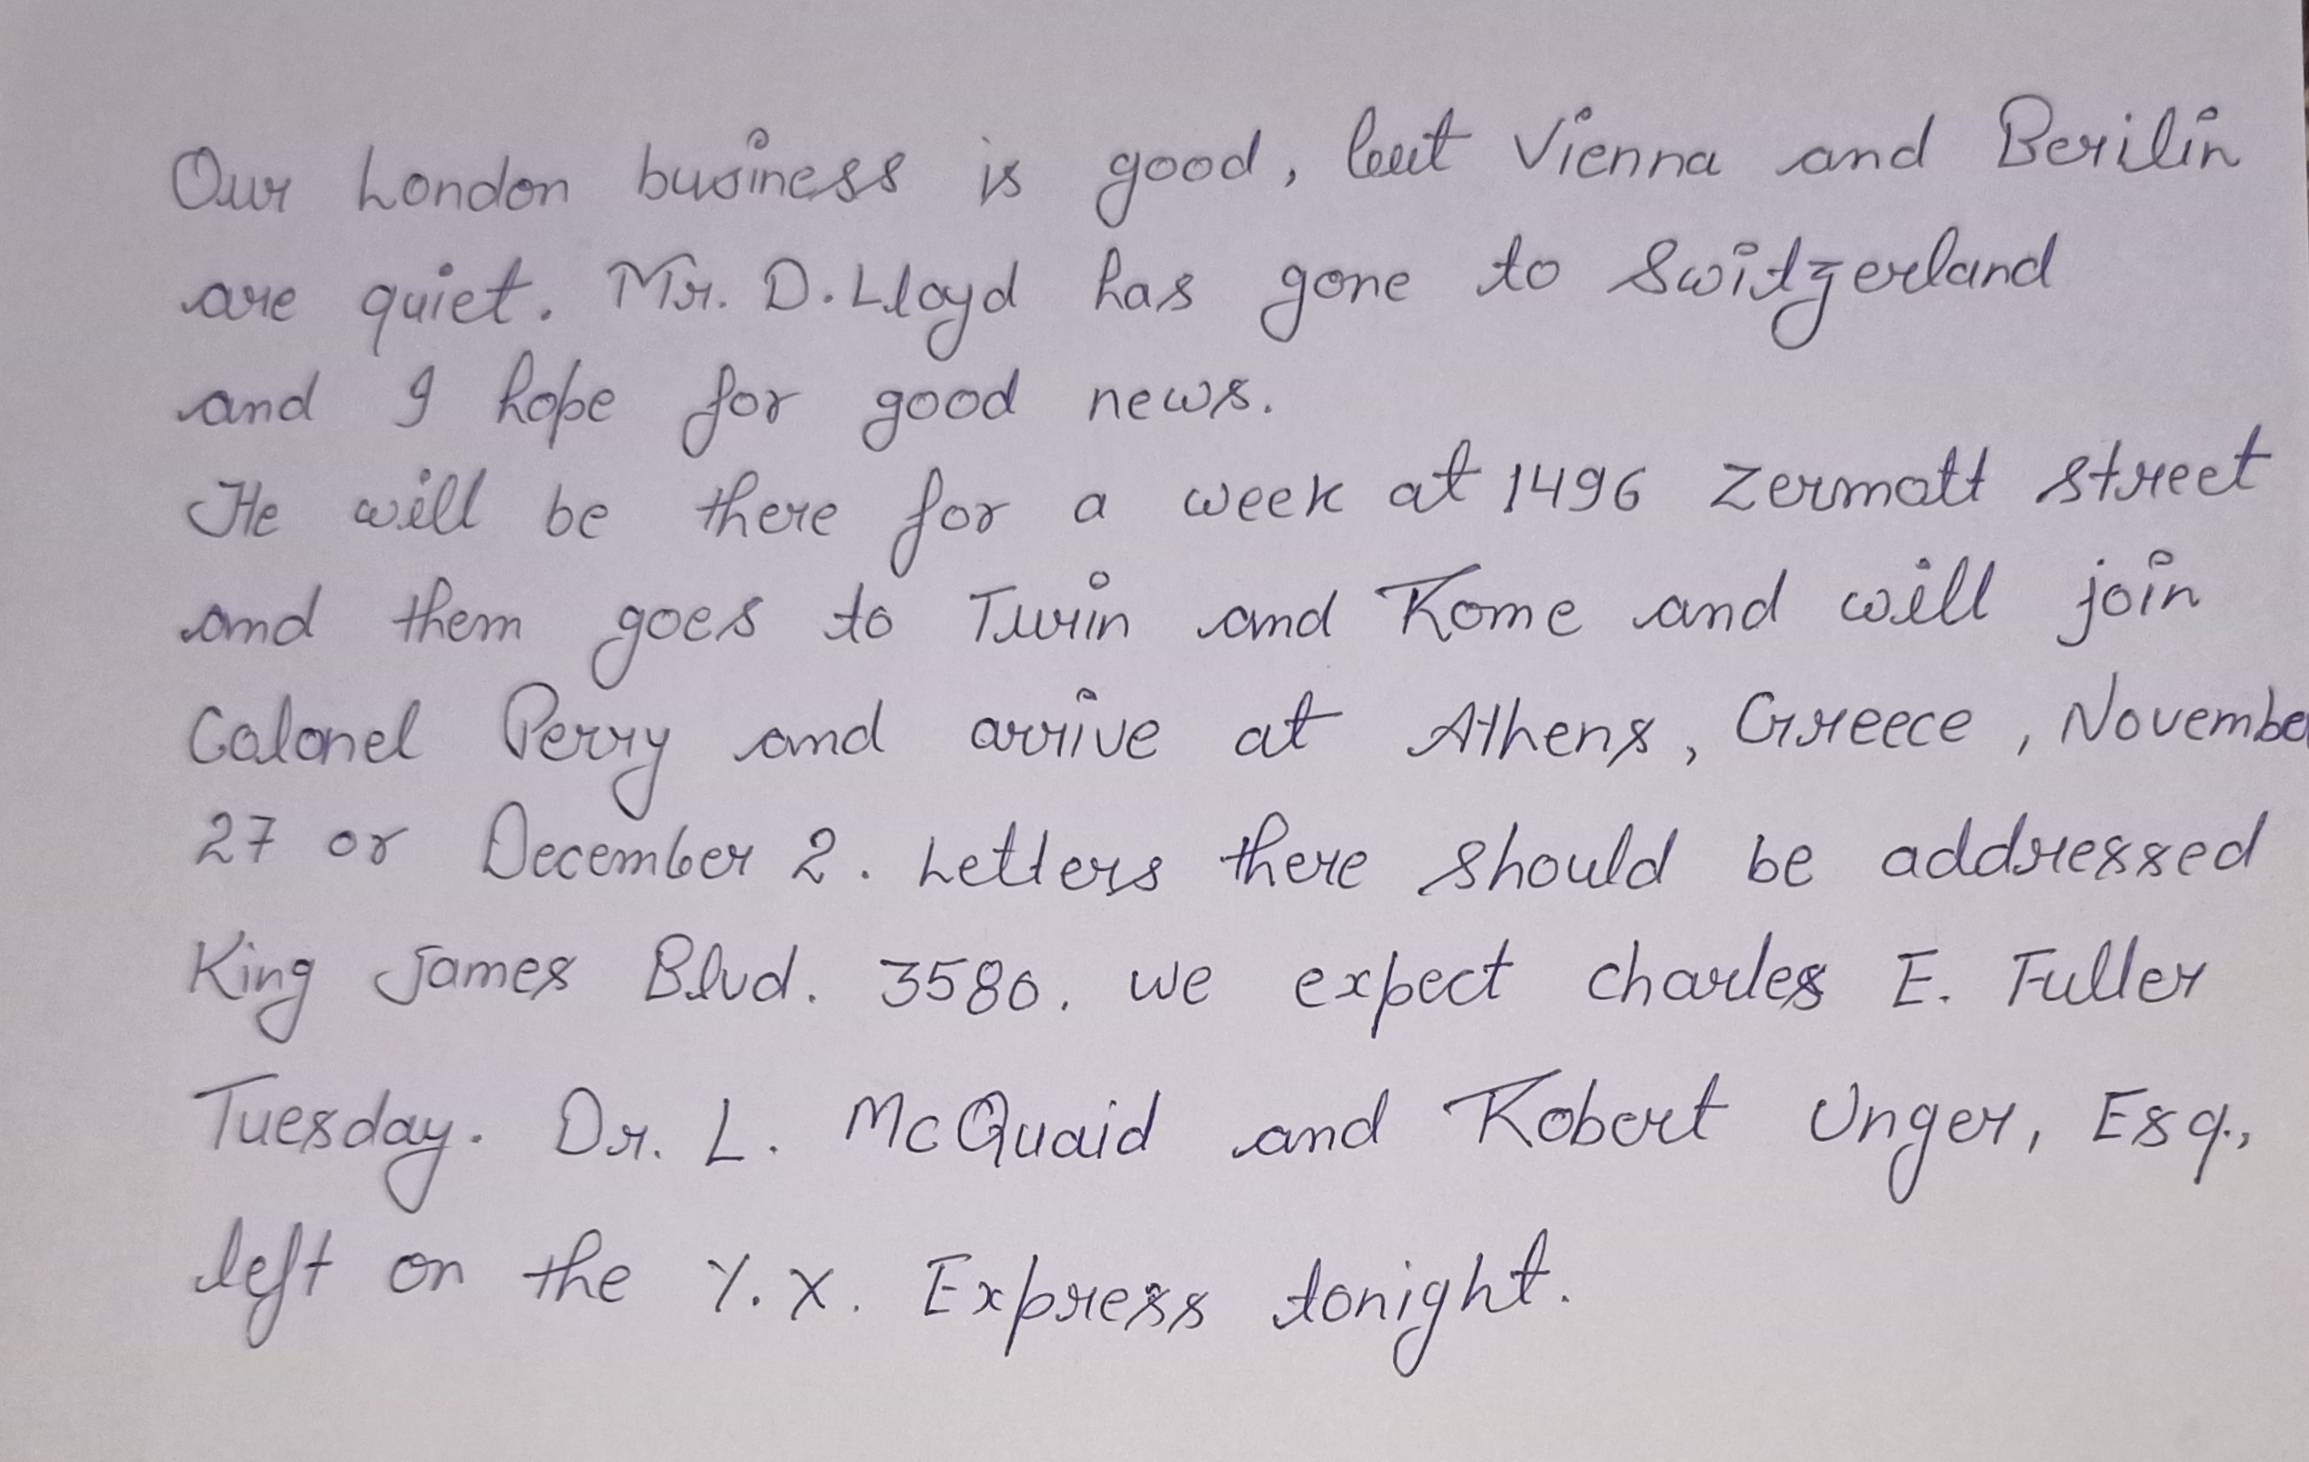 Our London business is good, but Vienna and Berilin
are quiet. Mr. D. Lloyd has gone to Switzerland
and I hope for good news.
He will be there for a week at 1496 Zermott street
and them goes to Turin and Rome and will join
Colonel Perry and arrive at Athens, Greece, November
27 or December 2. Letters there should be addressed
King James Blvd. 3580. we expect charles E. Fuller
Tuesday. Dr. L. McQuaid and Robert Unger, Esq.,
left on the Y.X. Express tonight.